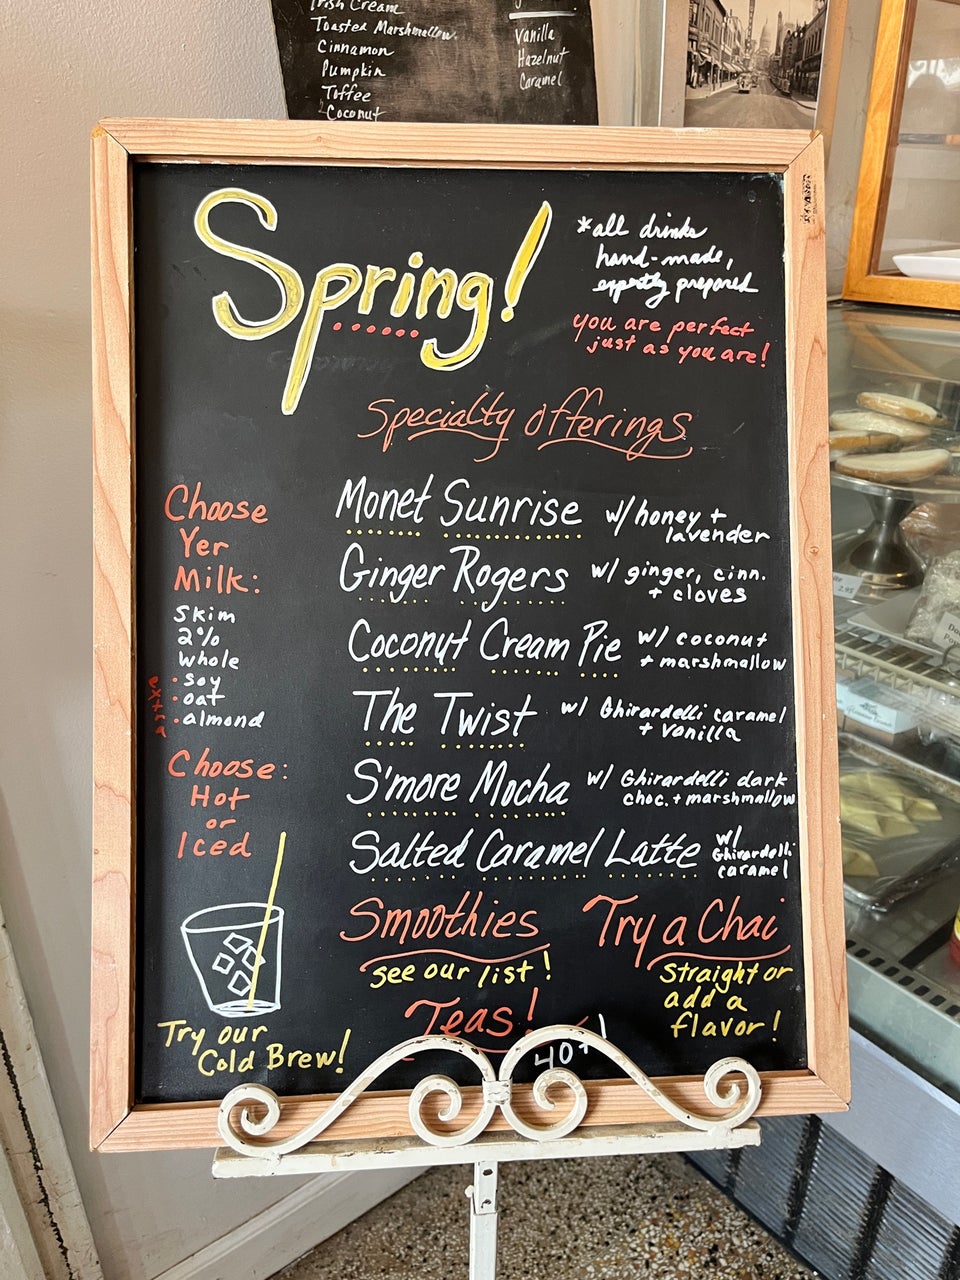 Irish Cream
Toasted Marshmallow
Cinnamon
Pumpkin
Toffee
Coconut
Vanilla
Hazelnut
Caramel
Spring!
*all drinks
hand-made,
expertly prepared
you are perfect
just as you are!
Specialty offerings
Choose
Yer
Milk:
skim
2%
whole
soy
oat
almond
extra
Choose:
Hot
or
Iced
Monet Sunrise w/ honey +
lavender
Ginger Rogers w/ ginger, cinn.
+ cloves
Coconut Cream Pie w/ coconut
+ marshmallow
The Twist w/ Ghirardelli caramel
+ vanilla
S'more Mocha w/ Ghirardelli dark
choc. + marshmallow
Salted Caramel Latte w/
Ghirardelli
caramel
Smoothies
see our list!
Teas!
40+!
Try a Chai
straight or
add a
flavor!
Try our
Cold Brew!
2.95